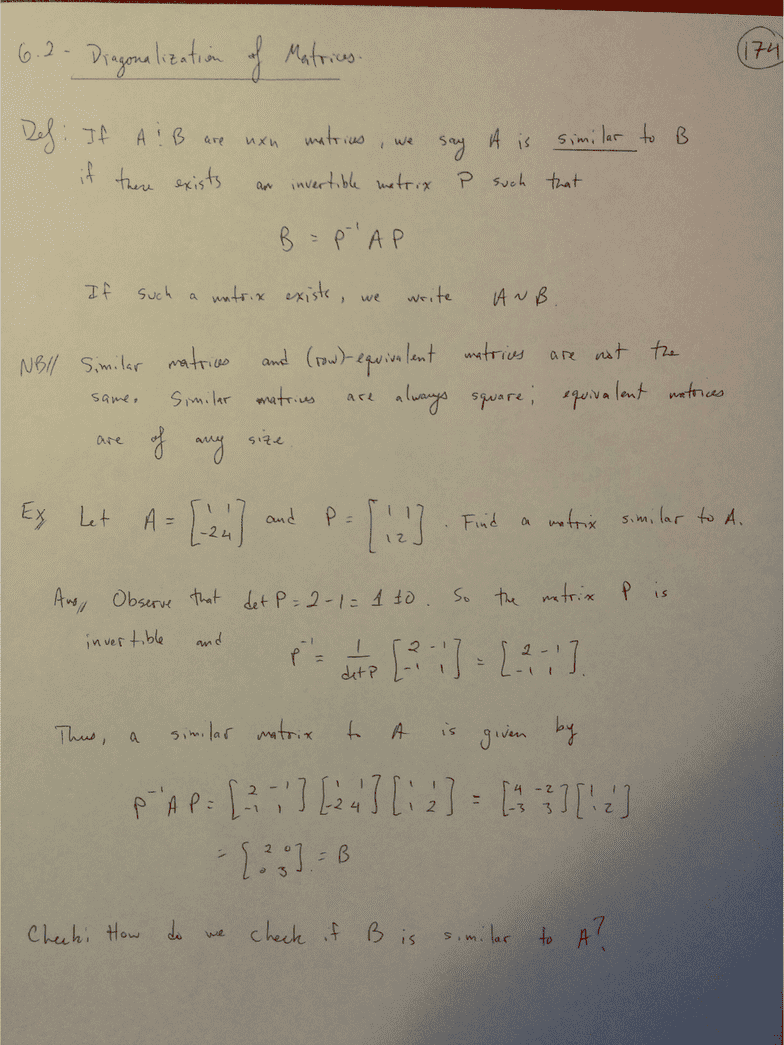 6.2 - Diagonalization of Matrices.
174
Def: If A & B are nxn matrices, we say A is similar to B
if there exists an invertible matrix P such that
B = P⁻¹ A P
If such a matrix exists, we write A ~ B.
NB// Similar matrices and (row)-equivalent matrices are not the
same. Similar matrices are always square; equivalent matrices
are of any size.
Ex Let A = [1 1; -2 4] and P = [1 1; 1 2]. Find a matrix similar to A.
Ans// Observe that det P = 2 - 1 = 1 ≠ 0. So the matrix P is
invertible and P⁻¹ = 1/det P [2 -1; -1 1] = [2 -1; -1 1].
Thus, a similar matrix to A is given by
P⁻¹ A P = [2 -1; -1 1] [1 1; -2 4] [1 1; 1 2] = [4 -2; -3 3] [1 1; 1 2]
= [2 0; 0 3] = B
Check: How do we check if B is similar to A?